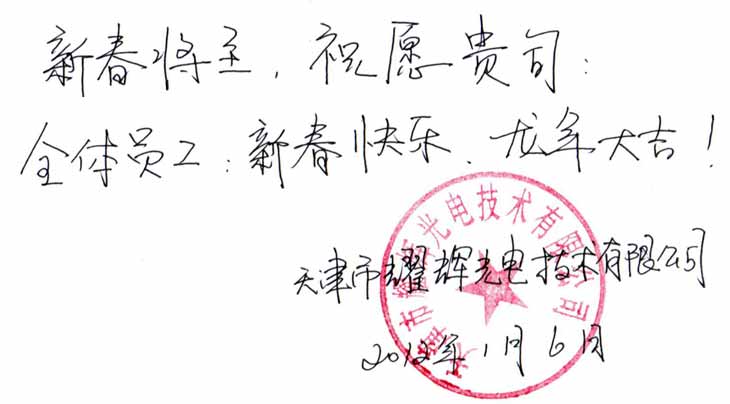 新春将至，祝愿贵司：
全体员工：新春快乐、龙年大吉！
天津市耀辉光电技术有限公司
天津市耀辉光电技术有限公司
2012年1月6日